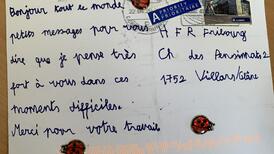 Bonjour tout le monde
petits messages pour vous
dire que je pense très
fort à vous dans ces
moments difficiles.
Merci pour votre travail
A PRIORITY
PRIORITAIRE
H F R Fribourg
Ch des Pensionnats 2
1752 Villars/Glâne